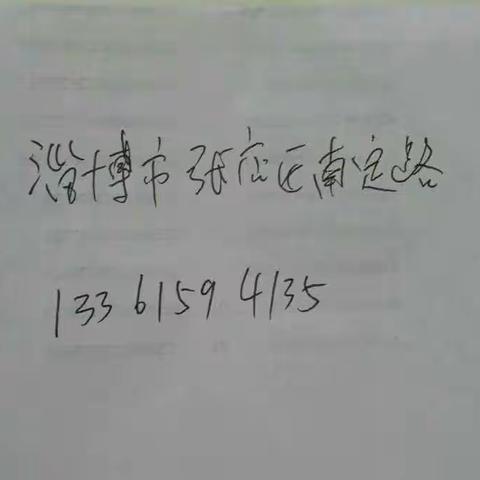 淄博市张店区南定路
133 6159 4135